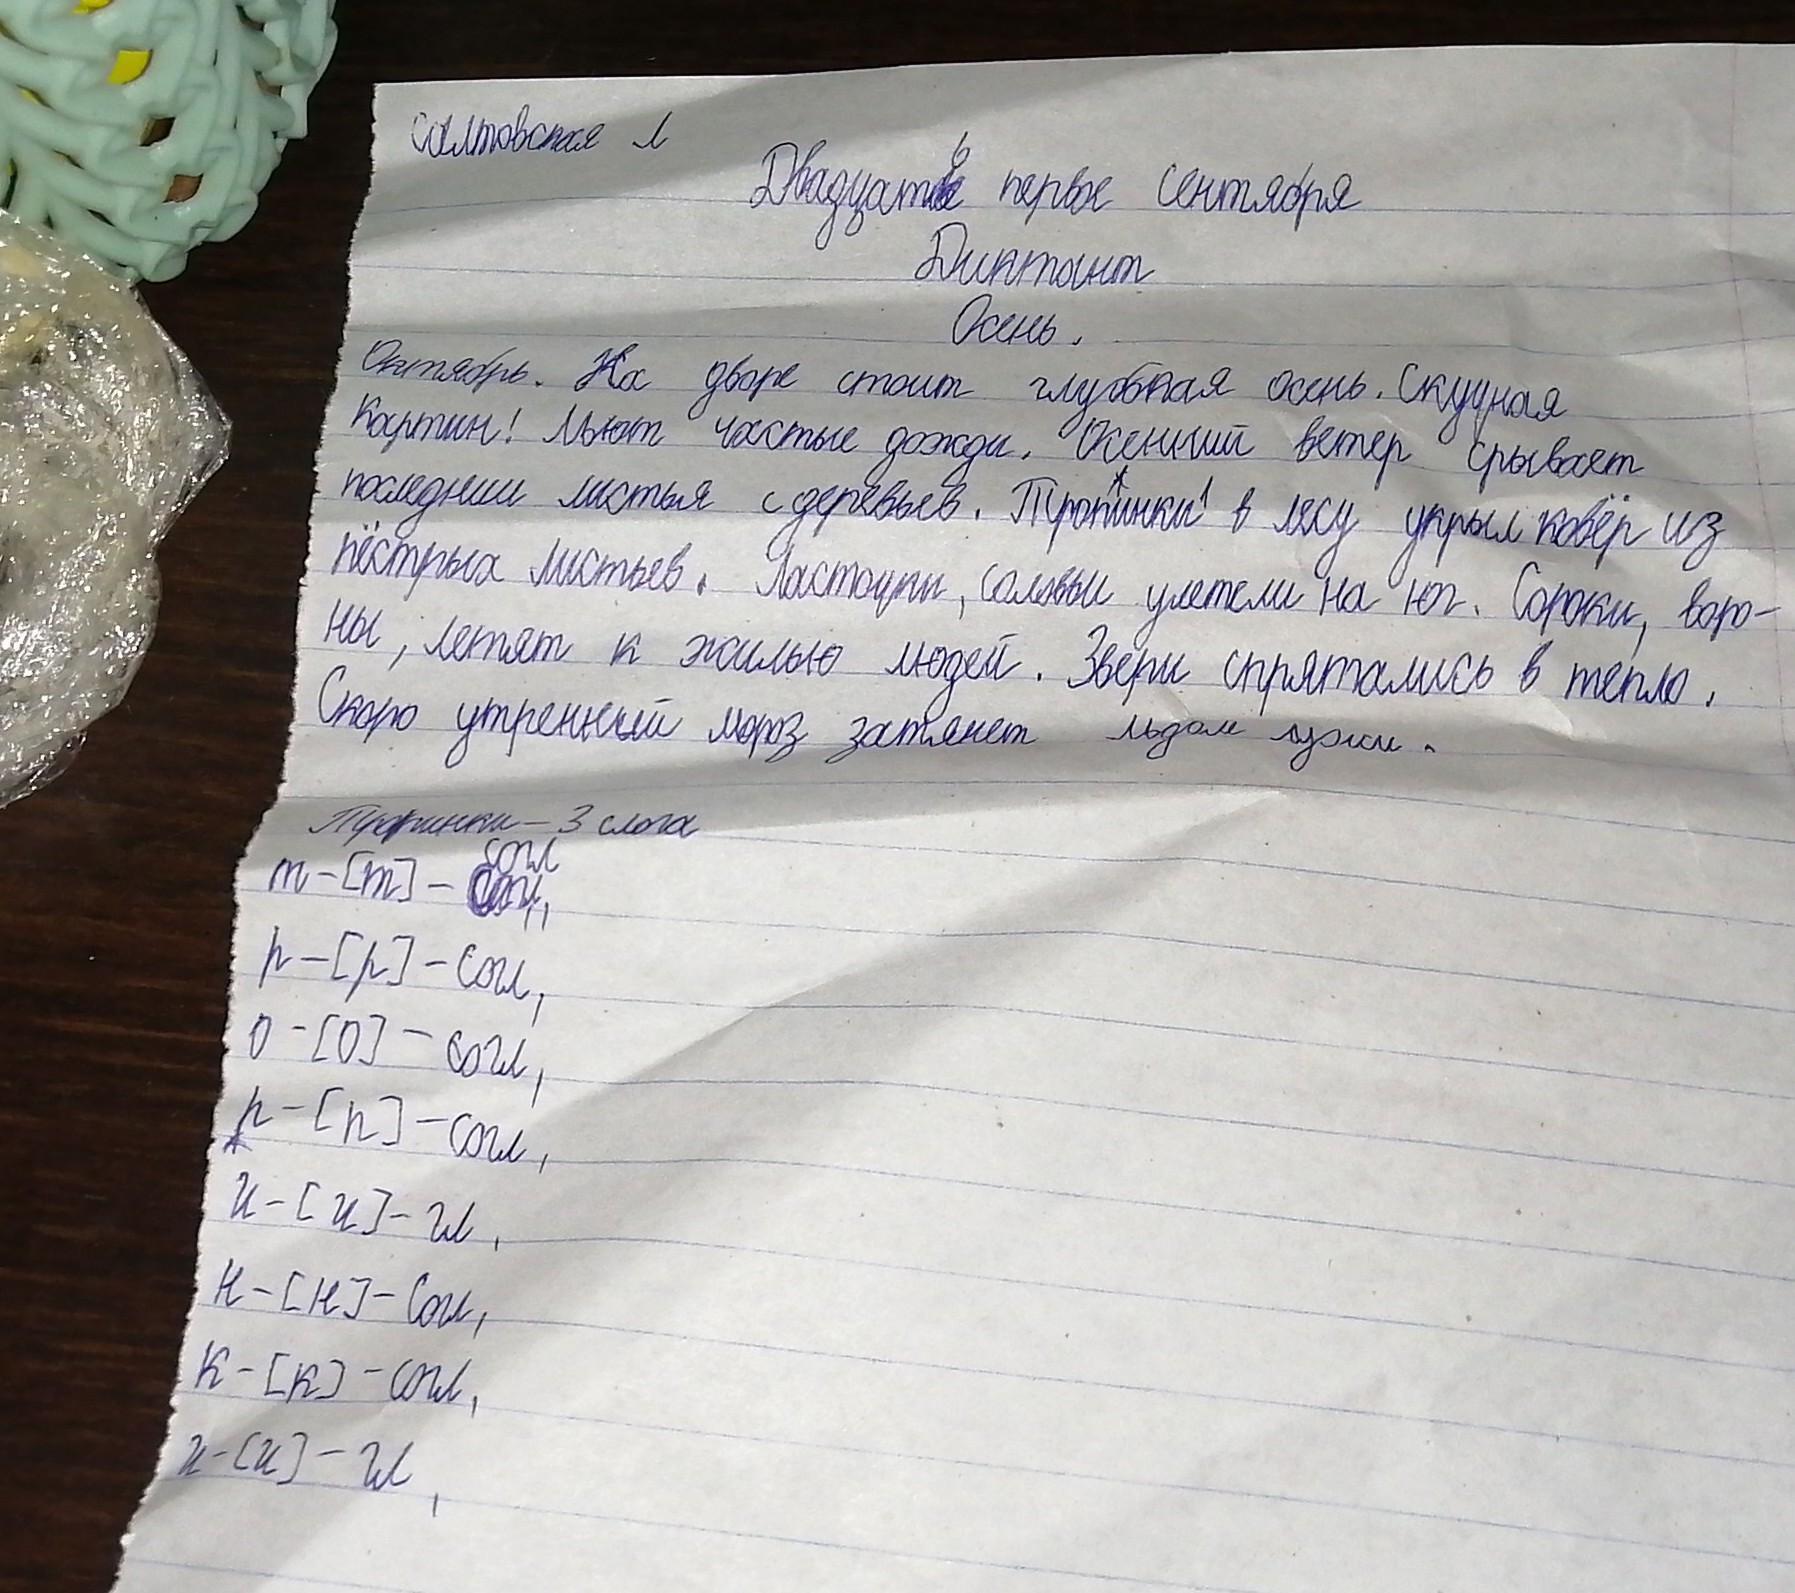 Салтовская Л
Двадцать первое сентября
Диктант
Осень.
Октябрь. На дворе стоит глубокая осень. Скучная
картин! Льют частые дожди. Осенний ветер срывает
последнии листья с деревьев. Тропинки в лесу укрыл ковёр из
пёстрых листьев. Ласточки, соловьи улетели на юг. Сороки, воро-
ны, летят к жилью людей. Звери спрятались в тепло.
Скоро утренний мороз затянет льдом лужи.
Тропинки - 3 слога
т - [т] - согл,
р - [р] - согл,
о - [о] - согл,
п - [п] - согл,
и - [и] - гл,
н - [н] - согл,
к - [к] - согл,
и - [и] - гл,